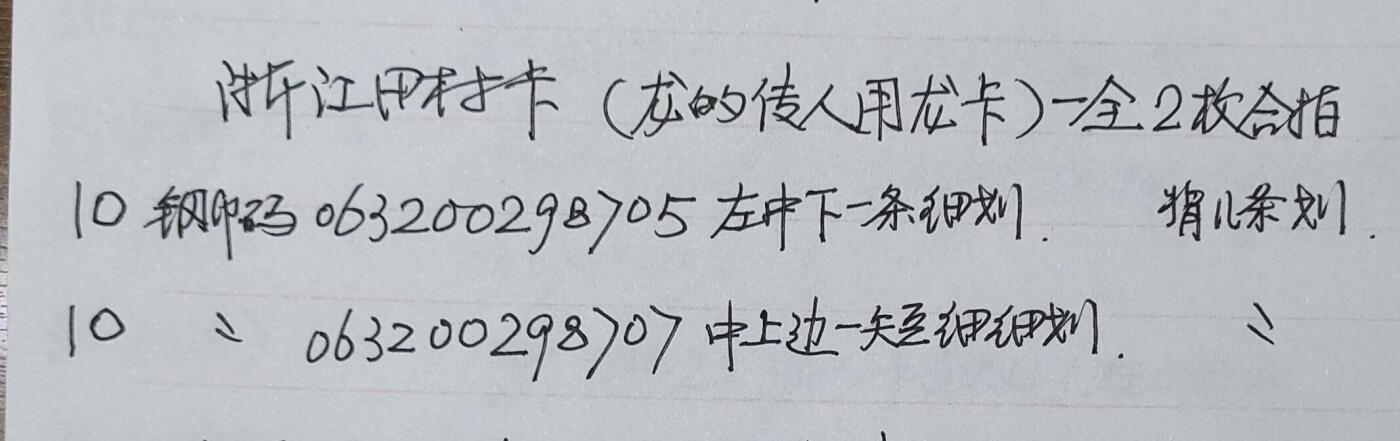 浙江田村卡（龙的传人用龙卡）一全2枚合拍
10 钢印码 063200298705 左中下一条细划. 背几条划.
10 〃 063200298707 中上边一短细细划. 〃